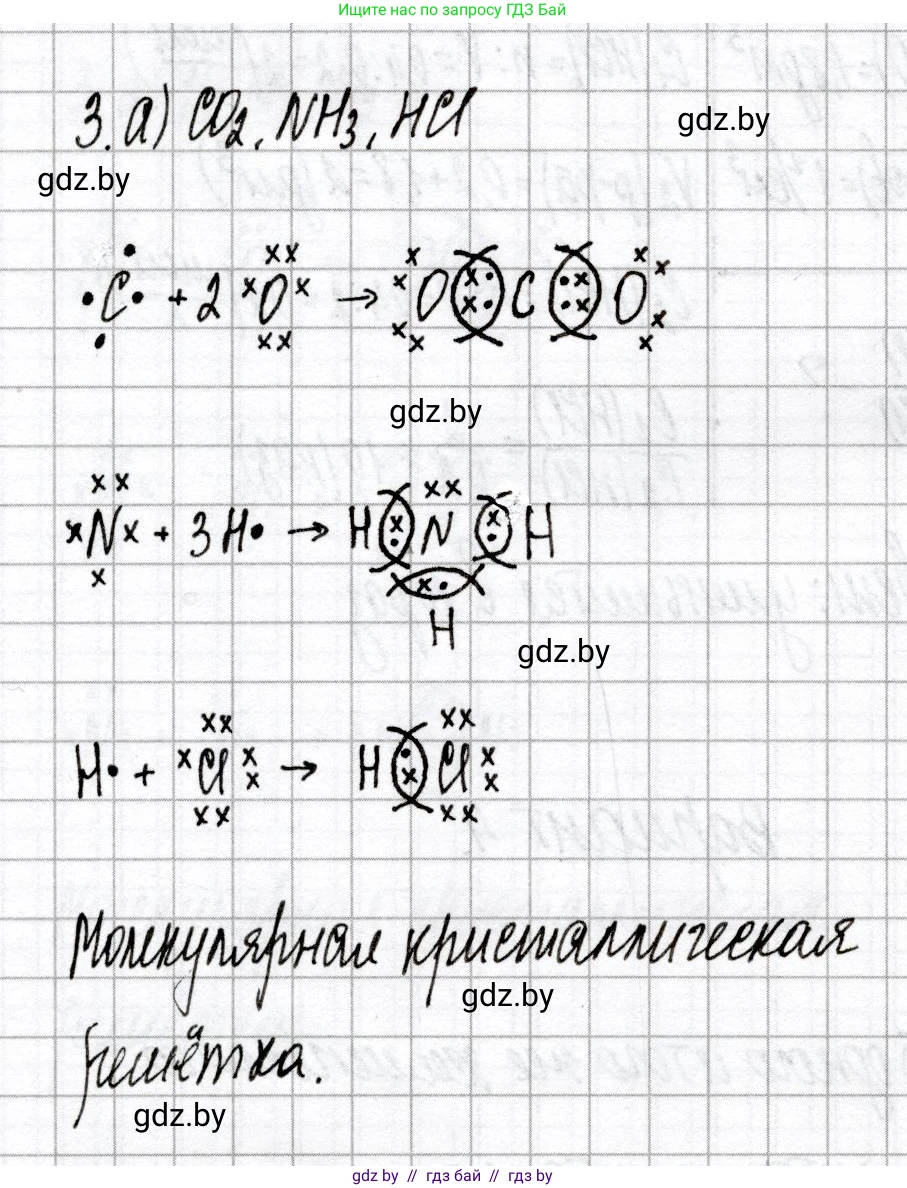 Ищите нас по запросу ГДЗ Бай
3. а) CO2, NH3, HCl
gdz.by
gdz.by
•C• + 2 xOx → O C O
gdz.by
xNx + 3H• → H N H
H
gdz.by
H• + xCl → H Cl
Молекулярная кристаллическая
gdz.by
решётка.
gdz.by
gdz by // гдз бай // гдз by